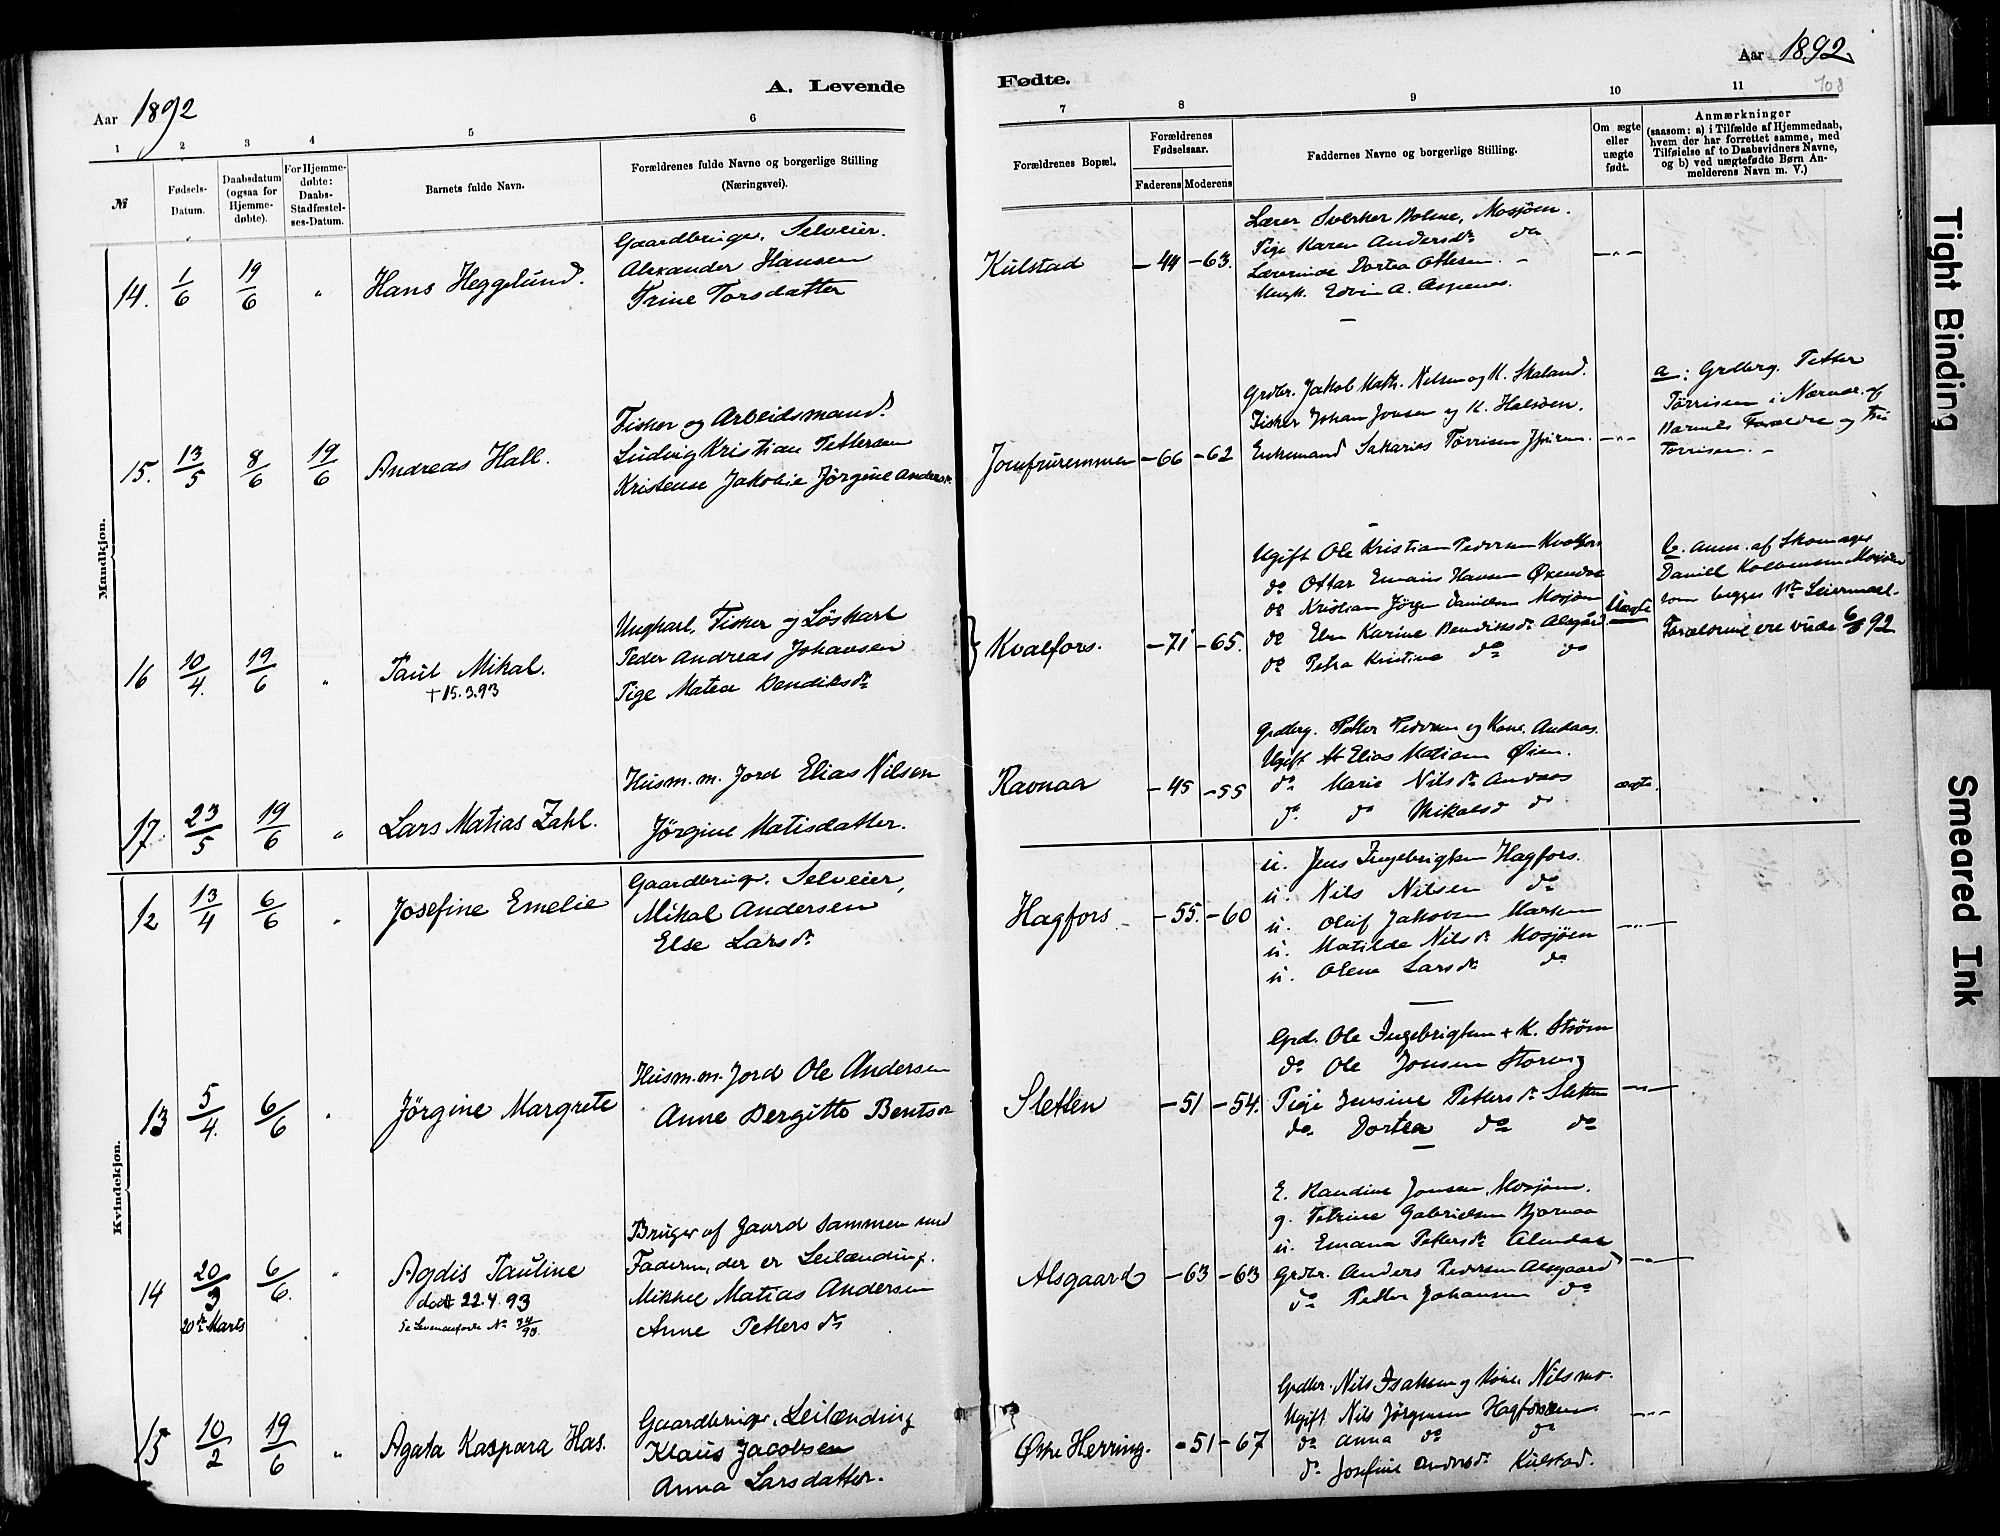 Aar 1892
A. Levende
Fødte.
Aar 1892.
108
1 2 3 4 5 6 7 8 9 10 11
№
Fødsels-Datum.
Daabsdatum (ogsaa for Hjemmedøbte).
For Hjemmedøbte: Daabs-Stadfæstelses-Datum.
Barnets fulde Navn.
Forældrenes fulde Navne og borgerlige Stilling
(Næringsvei).
Forældrenes Bopæl.
Forældrenes Fødselsaar.
Faderens Moderens
Faddernes Navne og borgerlige Stilling.
Om ægte eller uægte født.
Anmærkninger
(saasom: a) i Tilfælde af Hjemmedaab,
hvem der har forrettet samme, med
Tilføielse af to Daabsvidners Navne,
og b) ved uægtefødte Børn Anmelderens Navn m. V.)
Mandkjøn.
14. 1/6 19/6 " Hans Heggelund.
Gaardbruger. Selveier.
Alexander Hansen
Trine Torsdatter
Kulstad -44 -63.
Lærer Sverker Holme, Mosjøen.
Pige Karen Andersdr do
Lærerinde Dortea Ottesen. -
Ungk. Edvin A. Aspenes.
-"-
15. 13/5 8/6 19/6 Andreas Hall.
Fisker og Arbeidsmand.
Ludvig Kristian Pettersen
Kristense Jakobie Jørgine Andersdr.
Jomfruremmen -66 -62
Grdbr. Jakob Math. Nilsen og K. Skaland.
Fisker Johan Jonsen og K. Halsøen.
Enkemand Sakarias Tørrisen
-"-
a: Grdbrg. Petter
Tørrisen i Nærvær af
Barnets Forældre og
Tørrisen. -
16 10/4. 19/6 " Paul Mikal.
† 15.3.93
Ungkarl, Fisker og Löskarl
Peder Andreas Johansen
Pige Matea Bendiksdr
Kvalfors. -71 -65.
Ugift Ole Kristian Pedersen Kvalfors
do Ottar Hansen
do Kristian Jørgen Danielsen Mosjøen
do Elen Karine Bendiksdr Alsgård
do Petra Kristine do do
Uægte
b. anm. af Skomager
Daniel Kolbensen Mosjøen
som begges 1ste Leiermaal.
Forældrene ere viede 6/8 92
17. 23/5 19/6 " Lars Matias Zahl.
Husm. m. Jord Elias Nilsen
Jörgine Matisdatter.
Ravnaa -45 -55
Grdbrg. Petter Pedersen og Kone. Andaas.
Ugift Elias Matiasen Øien.
do Marie Nilsdr Andaas
do do Mikalsdr do
ægte.
Kvindekjøn.
12 13/4 6/6 " Josefine Emelie
Gaardbruger. Selveier,
Mikal Andersen
Else Larsdr
Hagfors -55. -60
u. Jens Ingebrigtsen Hagfors.
u. Nils Nilsen do
u. Oluf Jakobsen Marken
u. Matilde Nilsdr Mosjøen
u. Olena Larsdr do
-"-
13 5/4. 6/6 " Jörgine Margrete
Husm. m. Jord Ole Andersen
Anne Bergitte Bentsdr
Sletten -51 -54.
Grd. Ole Ingebrigtsen + K. Strøm
do Ole Jonsen Storeng
Pige Jensine Pettersdr Sletten
do Dortea do do
-"-
14 20/3 6/6. "
20de Marts
Agdis Pauline
død 22.4.93
Se Levendefødte № 34/93.
Bruger af Gaard sammen med
Faderen, der er Leilænding.
Mikkel Matias Andersen
Anne Pettersdr
Alsgaard -63 -63
E. Randine Jonsen, Mosjøen.
g. Petrine Gabrielsen Bjørnaa
u. Emana Pettersdr
Grdbr. Anders Pedersen Alsgaard
do Petter Johansen do
-"-
15 10/2 19/6 " Agata Kaspara Has.
Gaardbruger, Leilænding
Klaus Jacobsen
Anna Larsdatter.
Øvre Herring. -51 -67
Grdbr. Nils Isaksen og Kone. Nilsmo.
Ugift Nils Jørgensen Hagforsen
do Anna do do
do Josefine Andersdr Kulstad.
-"-
Tight Binding
Smeared Ink